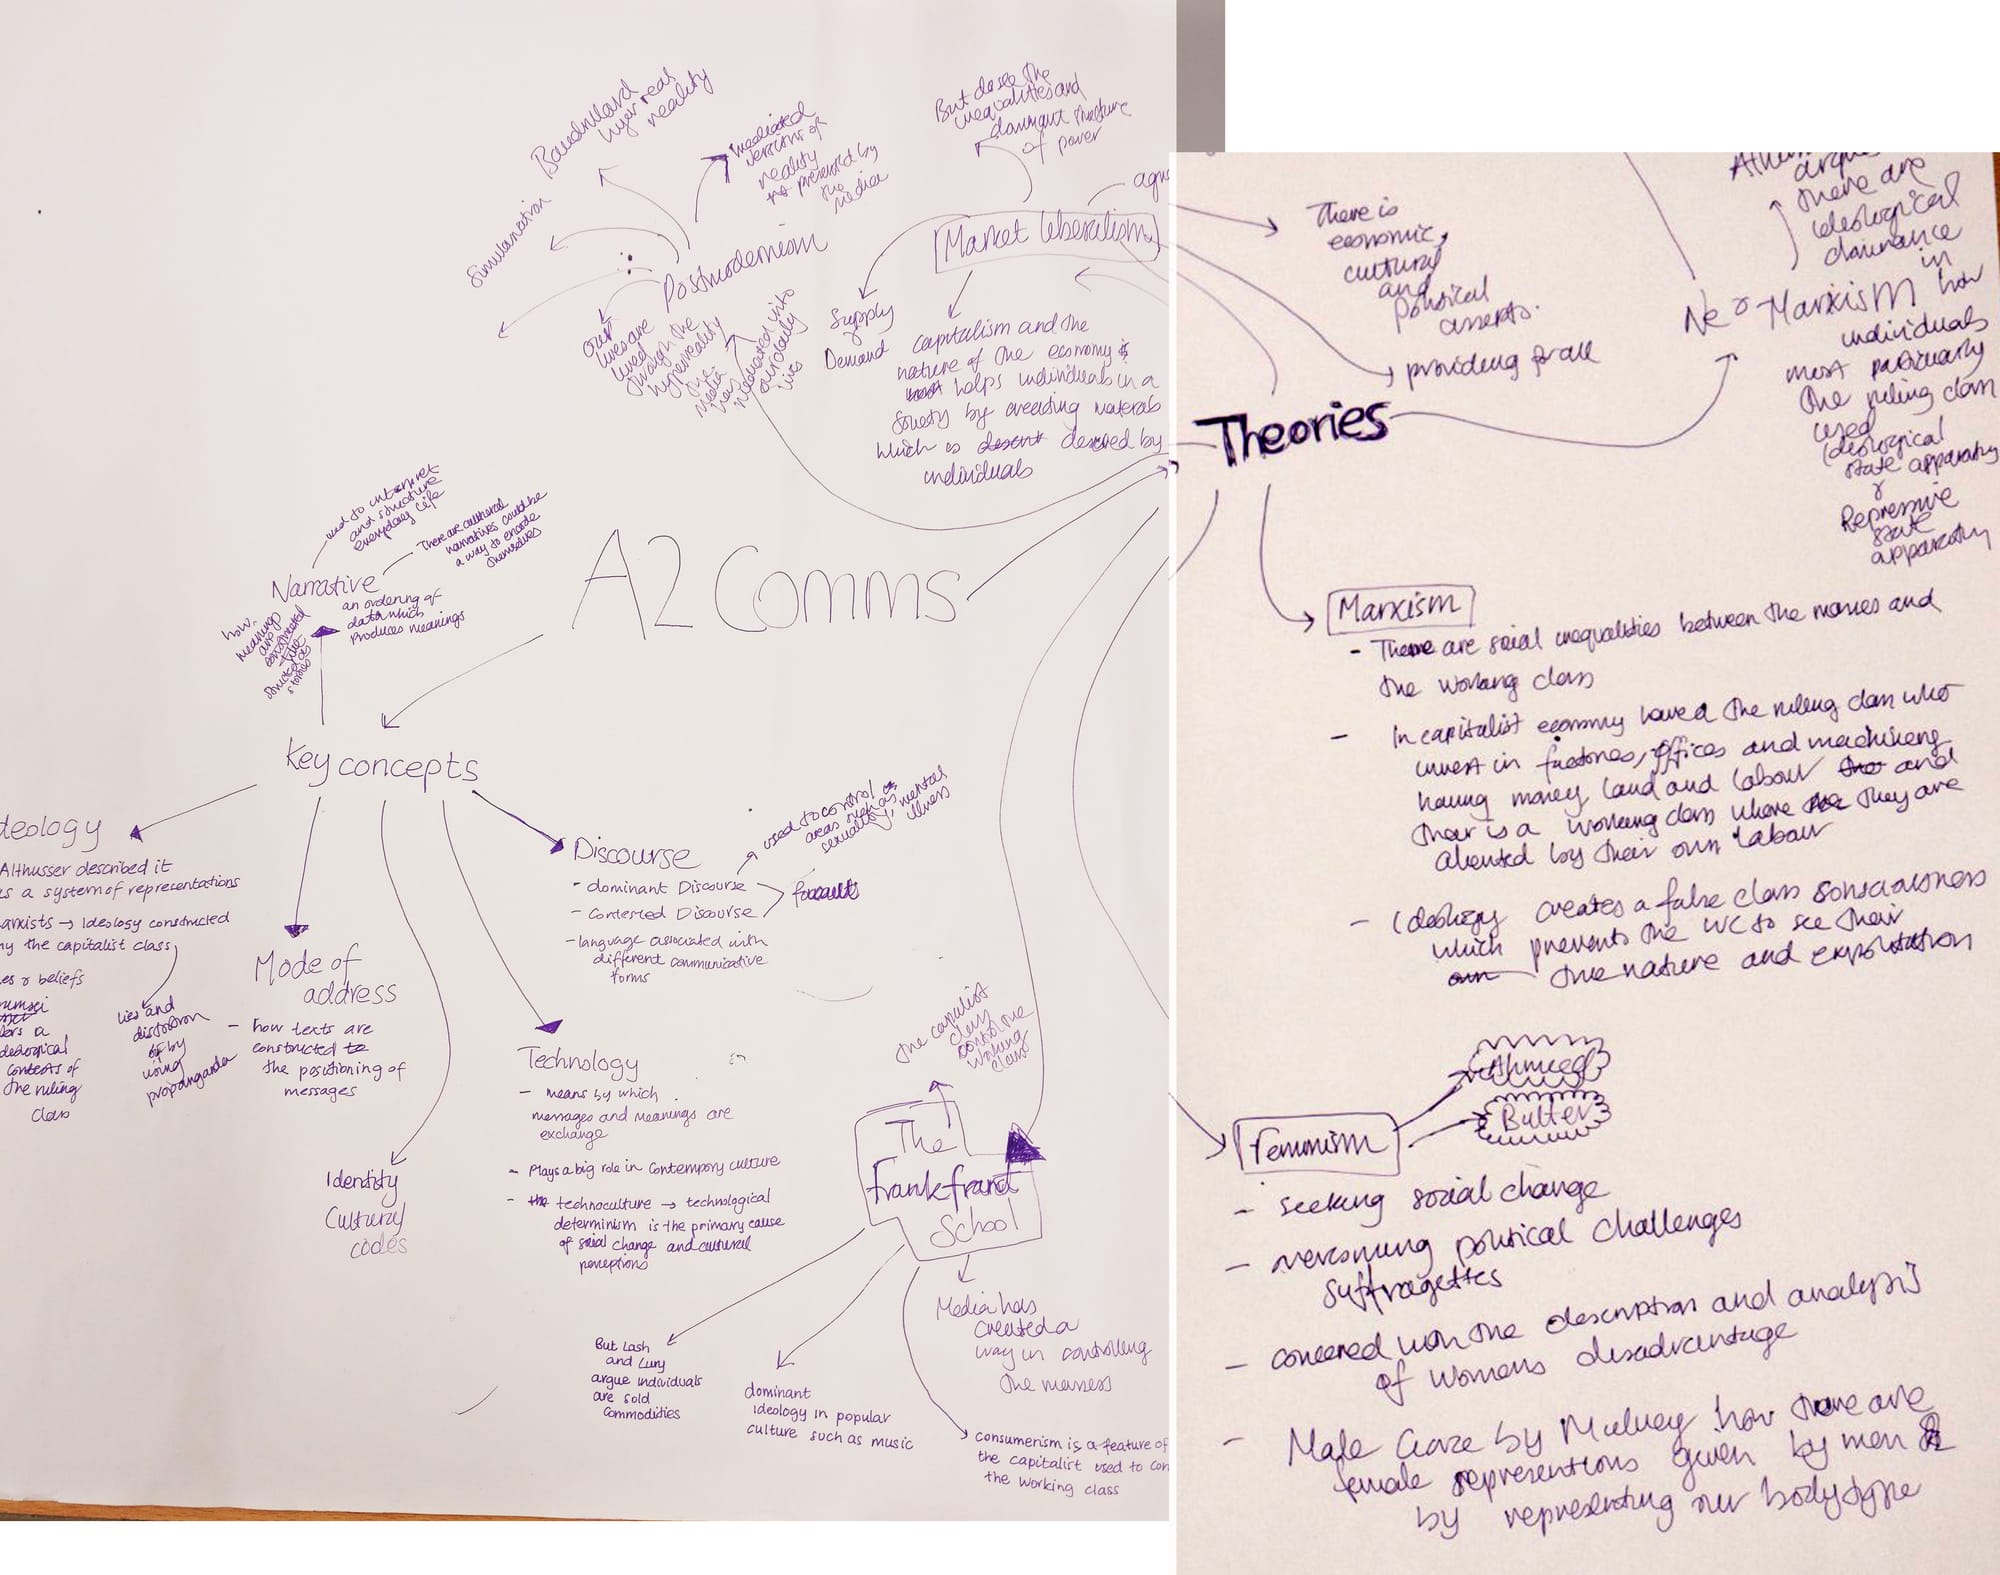 A2 Comms
Key concepts
Narrative
used to interpret
and structure
everyday life
There are cultural
narratives could be
a way to encode
themselves
an ordering of
data which
produces meanings
how
meanings
are
constructed
structured as
stories
deology
Althusser described it
s a system of representations
arxists → Ideology constructed
y the capitalist class
es & beliefs
deological
contexts of
the ruling
class
lies and
distortion
by
using
propanganda
Mode of
address
- how texts are
constructed to
the positioning of
messages
Identity
Cultural
codes
Technology
- means by which
messages and meanings are
exchange
- Plays a big role in contempory culture
- the technoculture → technological
determinism is the primary cause
of social change and cultural
perceptions
Discourse
- dominant Discourse
- Contested Discourse
- language associated with
different communicative
forms
used to control
areas such as
sexuality, mental
illness
foucault
Postmodernism
Baudrillard
hyper real
reality
Simulation
mediated
versions of
reality
presented by
the media
our
lives are
lived
through the
hyperreality
the
media
has
mediated into
our daily
lives
Market liberalism
But does the
inequalities and
dominant structure
of power
agu
Supply
&
Demand
capitalism and the
nature of the economy is
helps individuals in a
society by creating materials
which is desired by
individuals
The
Frankfrant
School
the capitalist
class
control the
working
class
But Lash
and Lury
argue individuals
are sold
commodities
dominant
ideology in popular
culture such as music
Media has
created a
way in controlling
the masses
consumerism is a feature of
the capitalist used to con
the working class
Theories
There is
economic,
cultural
and
Political
asserts.
providing for all
Neo-Marxism
argue
there are
ideological
dominance
in
how
individuals
most particularly
the ruling class
used
Ideological
state apparatus
&
Repressive
state
apparatus
Marxism
- There are social inequalities between the masses and
the working class
- In capitalist economy based the ruling class who
invest in factories, offices and machinery
having money land and labour the and
their is a working class where the they are
alienated by their own labour
- Ideology creates a false class consciousness
which prevents the WC to see their
own the nature and exploitation
Feminism
Ahmed
Butler
- seeking social change
- overcoming political challenges
suffragettes
- concerned with the description and analysis
of womens disadvantage
- Male Gaze by Mulvey how there are
female representions given by men
by representing our body type